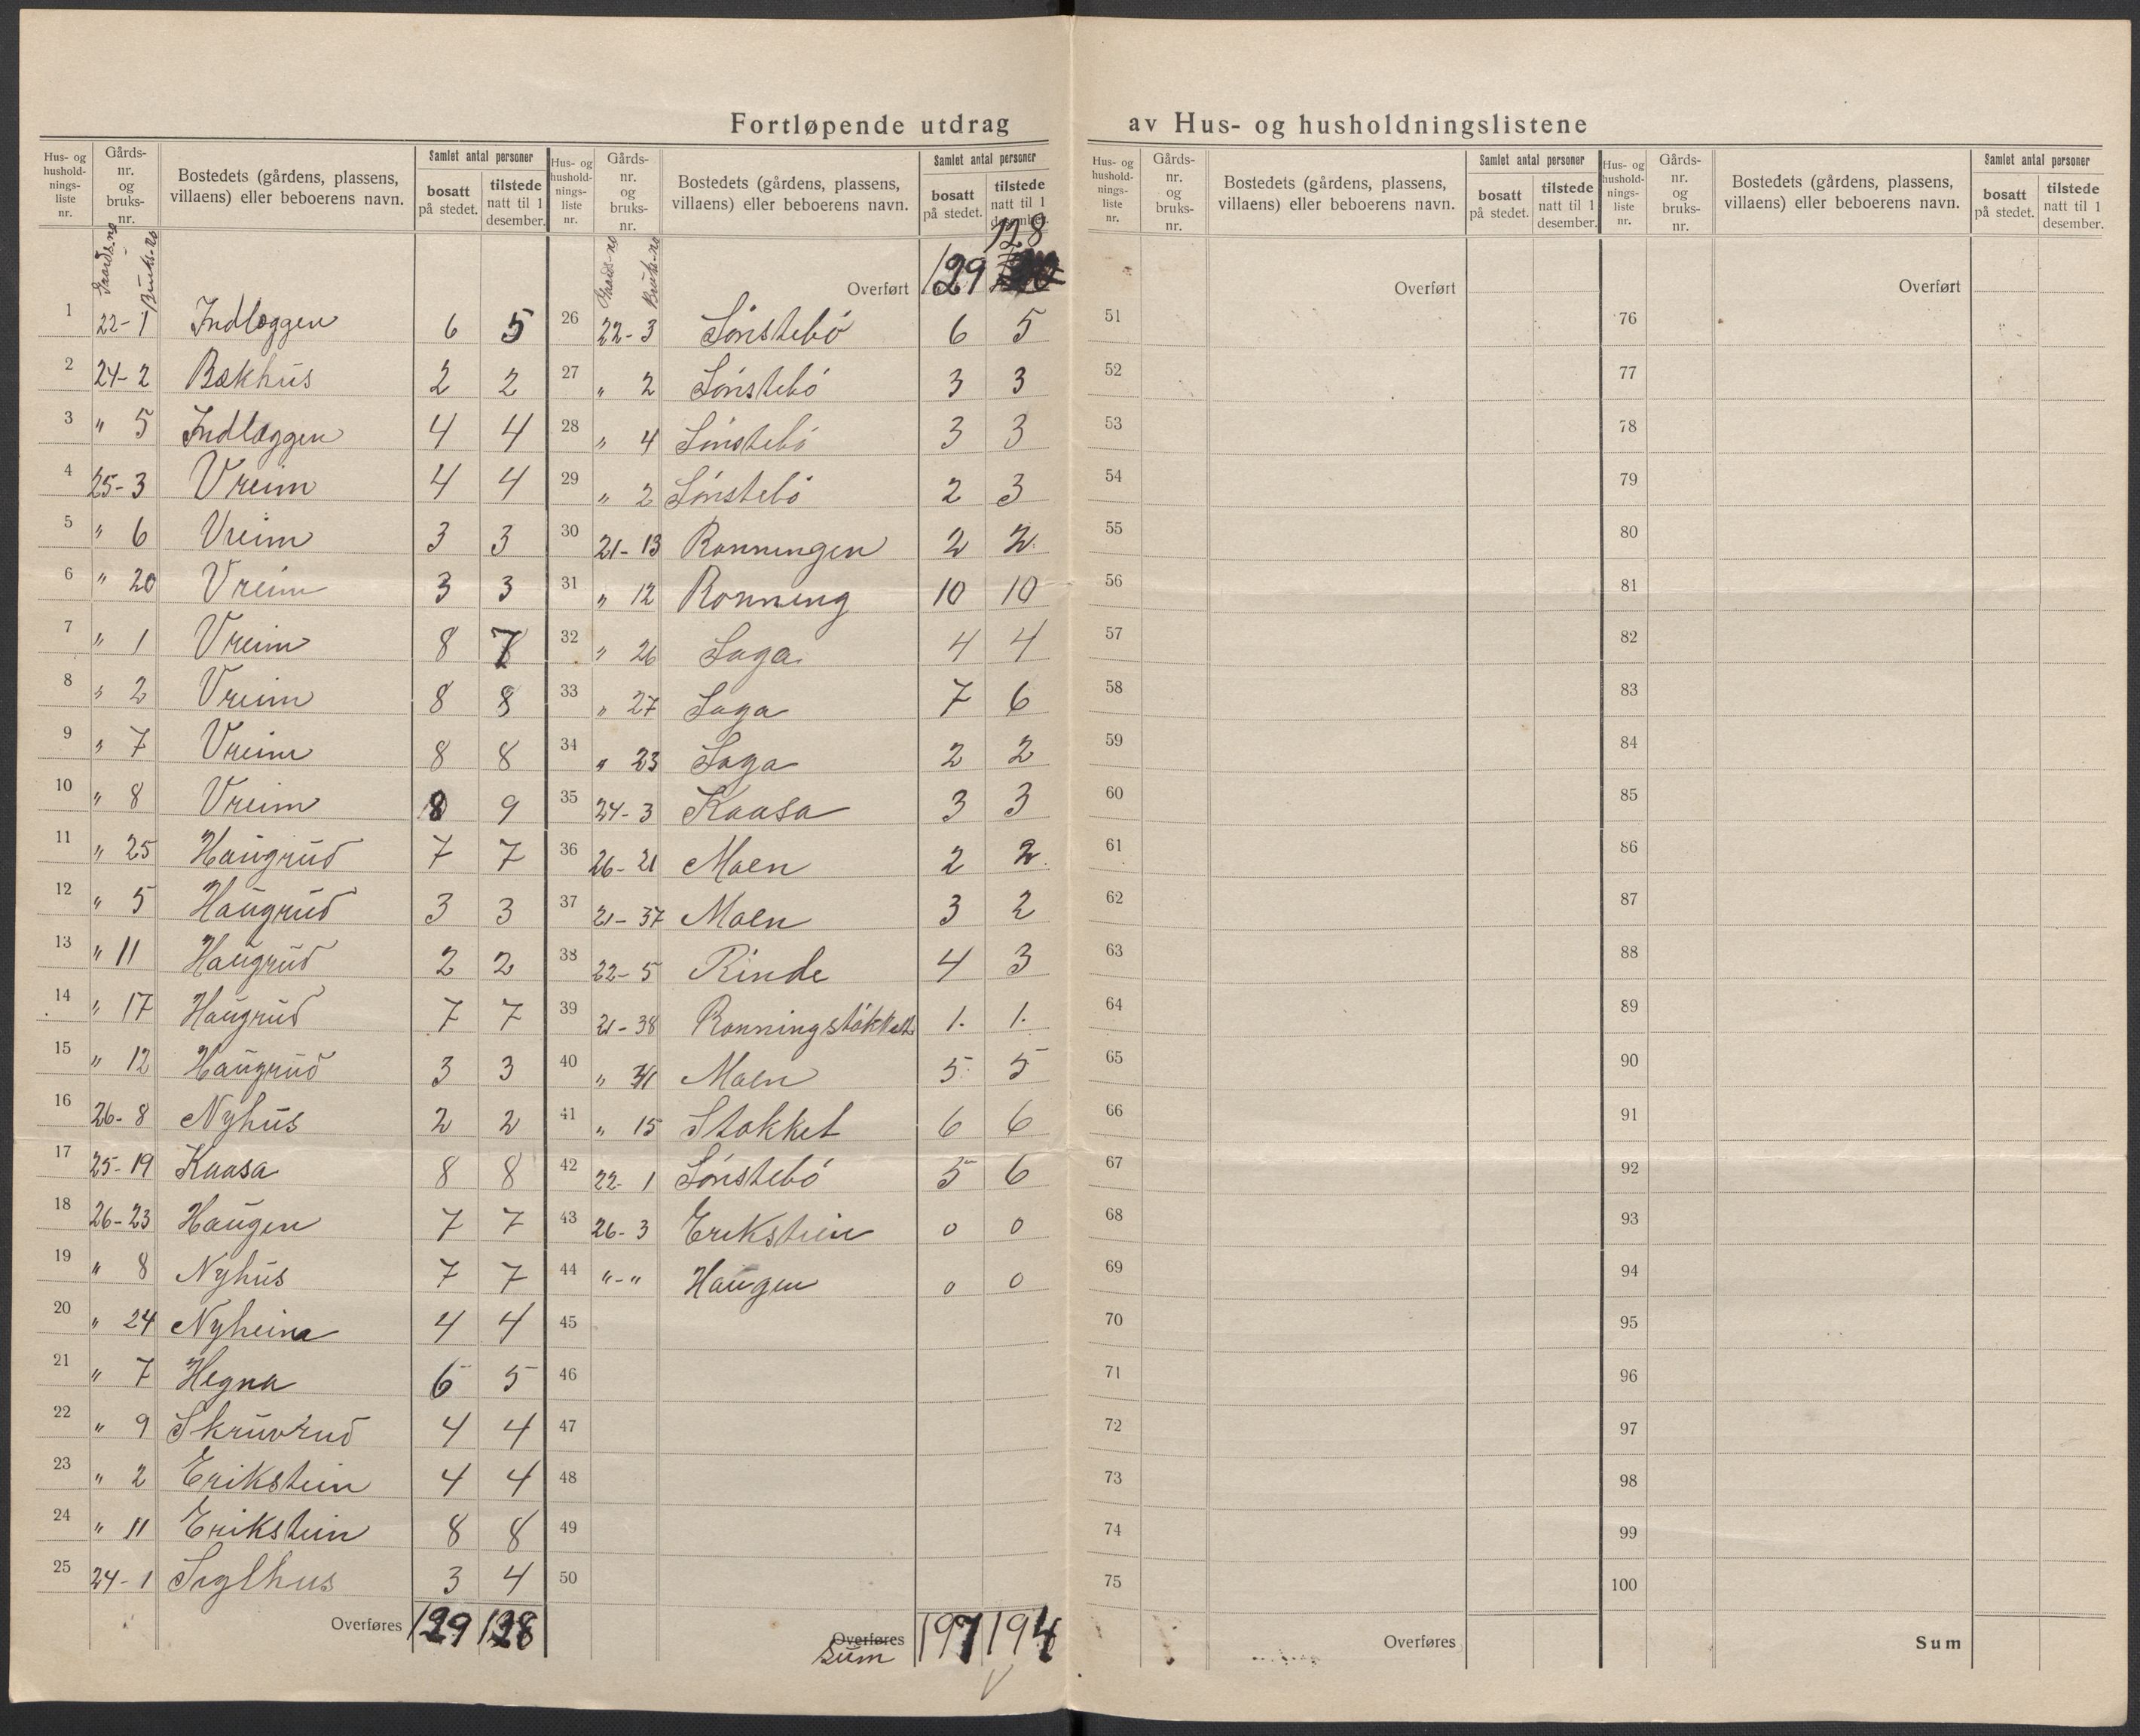 Fortløpende utdrag av Hus- og husholdningslistene
Hus- og hushold-nings-liste nr. | Gårds-nr. og bruks-nr. | Bostedets (gårdens, plassens, villaens) eller beboerens navn. | Samlet antal personer | bosatt på stedet. | tilstede natt til 1 desember.
Gaards-no Bruks-no
1 22-1 Indlæggen 6 5
2 24-2 Bækhus 2 2
3 " 5 Indlæggen 4 4
4 25-3 Vreim 4 4
5 " 6 Vreim 3 3
6 " 20 Vreim 3 3
7 " 1 Vreim 8 7
8 " 2 Vreim 8 8
9 " 7 Vreim 8 8
10 " 8 Vreim 8 9
11 " 25 Haugrud 7 7
12 " 5 Haugrud 3 3
13 " 11 Haugrud 2 2
14 " 17 Haugrud 7 7
15 " 12 Haugrud 3 3
16 26-8 Nyhus 2 2
17 25-19 Kaasa 8 8
18 26-23 Haugen 7 7
19 " 8 Nyhus 7 7
20 " 24 Nyheim 4 4
21 " 7 Hegna 6 5
22 " 9 Skruvrud 4 4
23 " 2 Erikstein 4 4
24 " 11 Erikstein 8 8
25 24-1 Siglhus 3 4
Overføres 129 128
Hus- og hushold-nings-liste nr. | Gårds-nr. og bruks-nr. | Bostedets (gårdens, plassens, villaens) eller beboerens navn. | Samlet antal personer | bosatt på stedet. | tilstede natt til 1 desember.
Gaards-no Bruks-no
Overført 129 128
26 22-3 Lønstebö 6 5
27 " 2 Lönstebö 3 3
28 " 4 Lönstebö 3 3
29 " 2 Lönstebö 2 3
30 21-13 Rønningen 2 2
31 " 12 Rønning 10 10
32 " 26 Saga 4 4
33 " 27 Saga 7 6
34 " 23 Saga 2 2
35 24-3 Kaasa 3 3
36 26-21 Moen 2 2
37 21-37 Moen 3 2
38 22-5 Rinde 4 3
39 21-38 1. 1.
40 " Moen 5 5
41 " 15 Stokket 6 6
42 22-1 Lönstebö 5 6
43 26-3 Erikstein 0 0
44 "-" Haugen 0 0
45
46
47
48
49
50
Overføres
Sum 197 194
Hus- og hushold-nings-liste nr. | Gårds-nr. og bruks-nr. | Bostedets (gårdens, plassens, villaens) eller beboerens navn. | Samlet antal personer | bosatt på stedet. | tilstede natt til 1 desember.
Overført
51
52
53
54
55
56
57
58
59
60
61
62
63
64
65
66
67
68
69
70
71
72
73
74
75
Overføres
Hus- og hushold-nings-liste nr. | Gårds-nr. og bruks-nr. | Bostedets (gårdens, plassens, villaens) eller beboerens navn. | Samlet antal personer | bosatt på stedet. | tilstede natt til 1 desember.
Overført
76
77
78
79
80
81
82
83
84
85
86
87
88
89
90
91
92
93
94
95
96
97
98
99
100
Sum